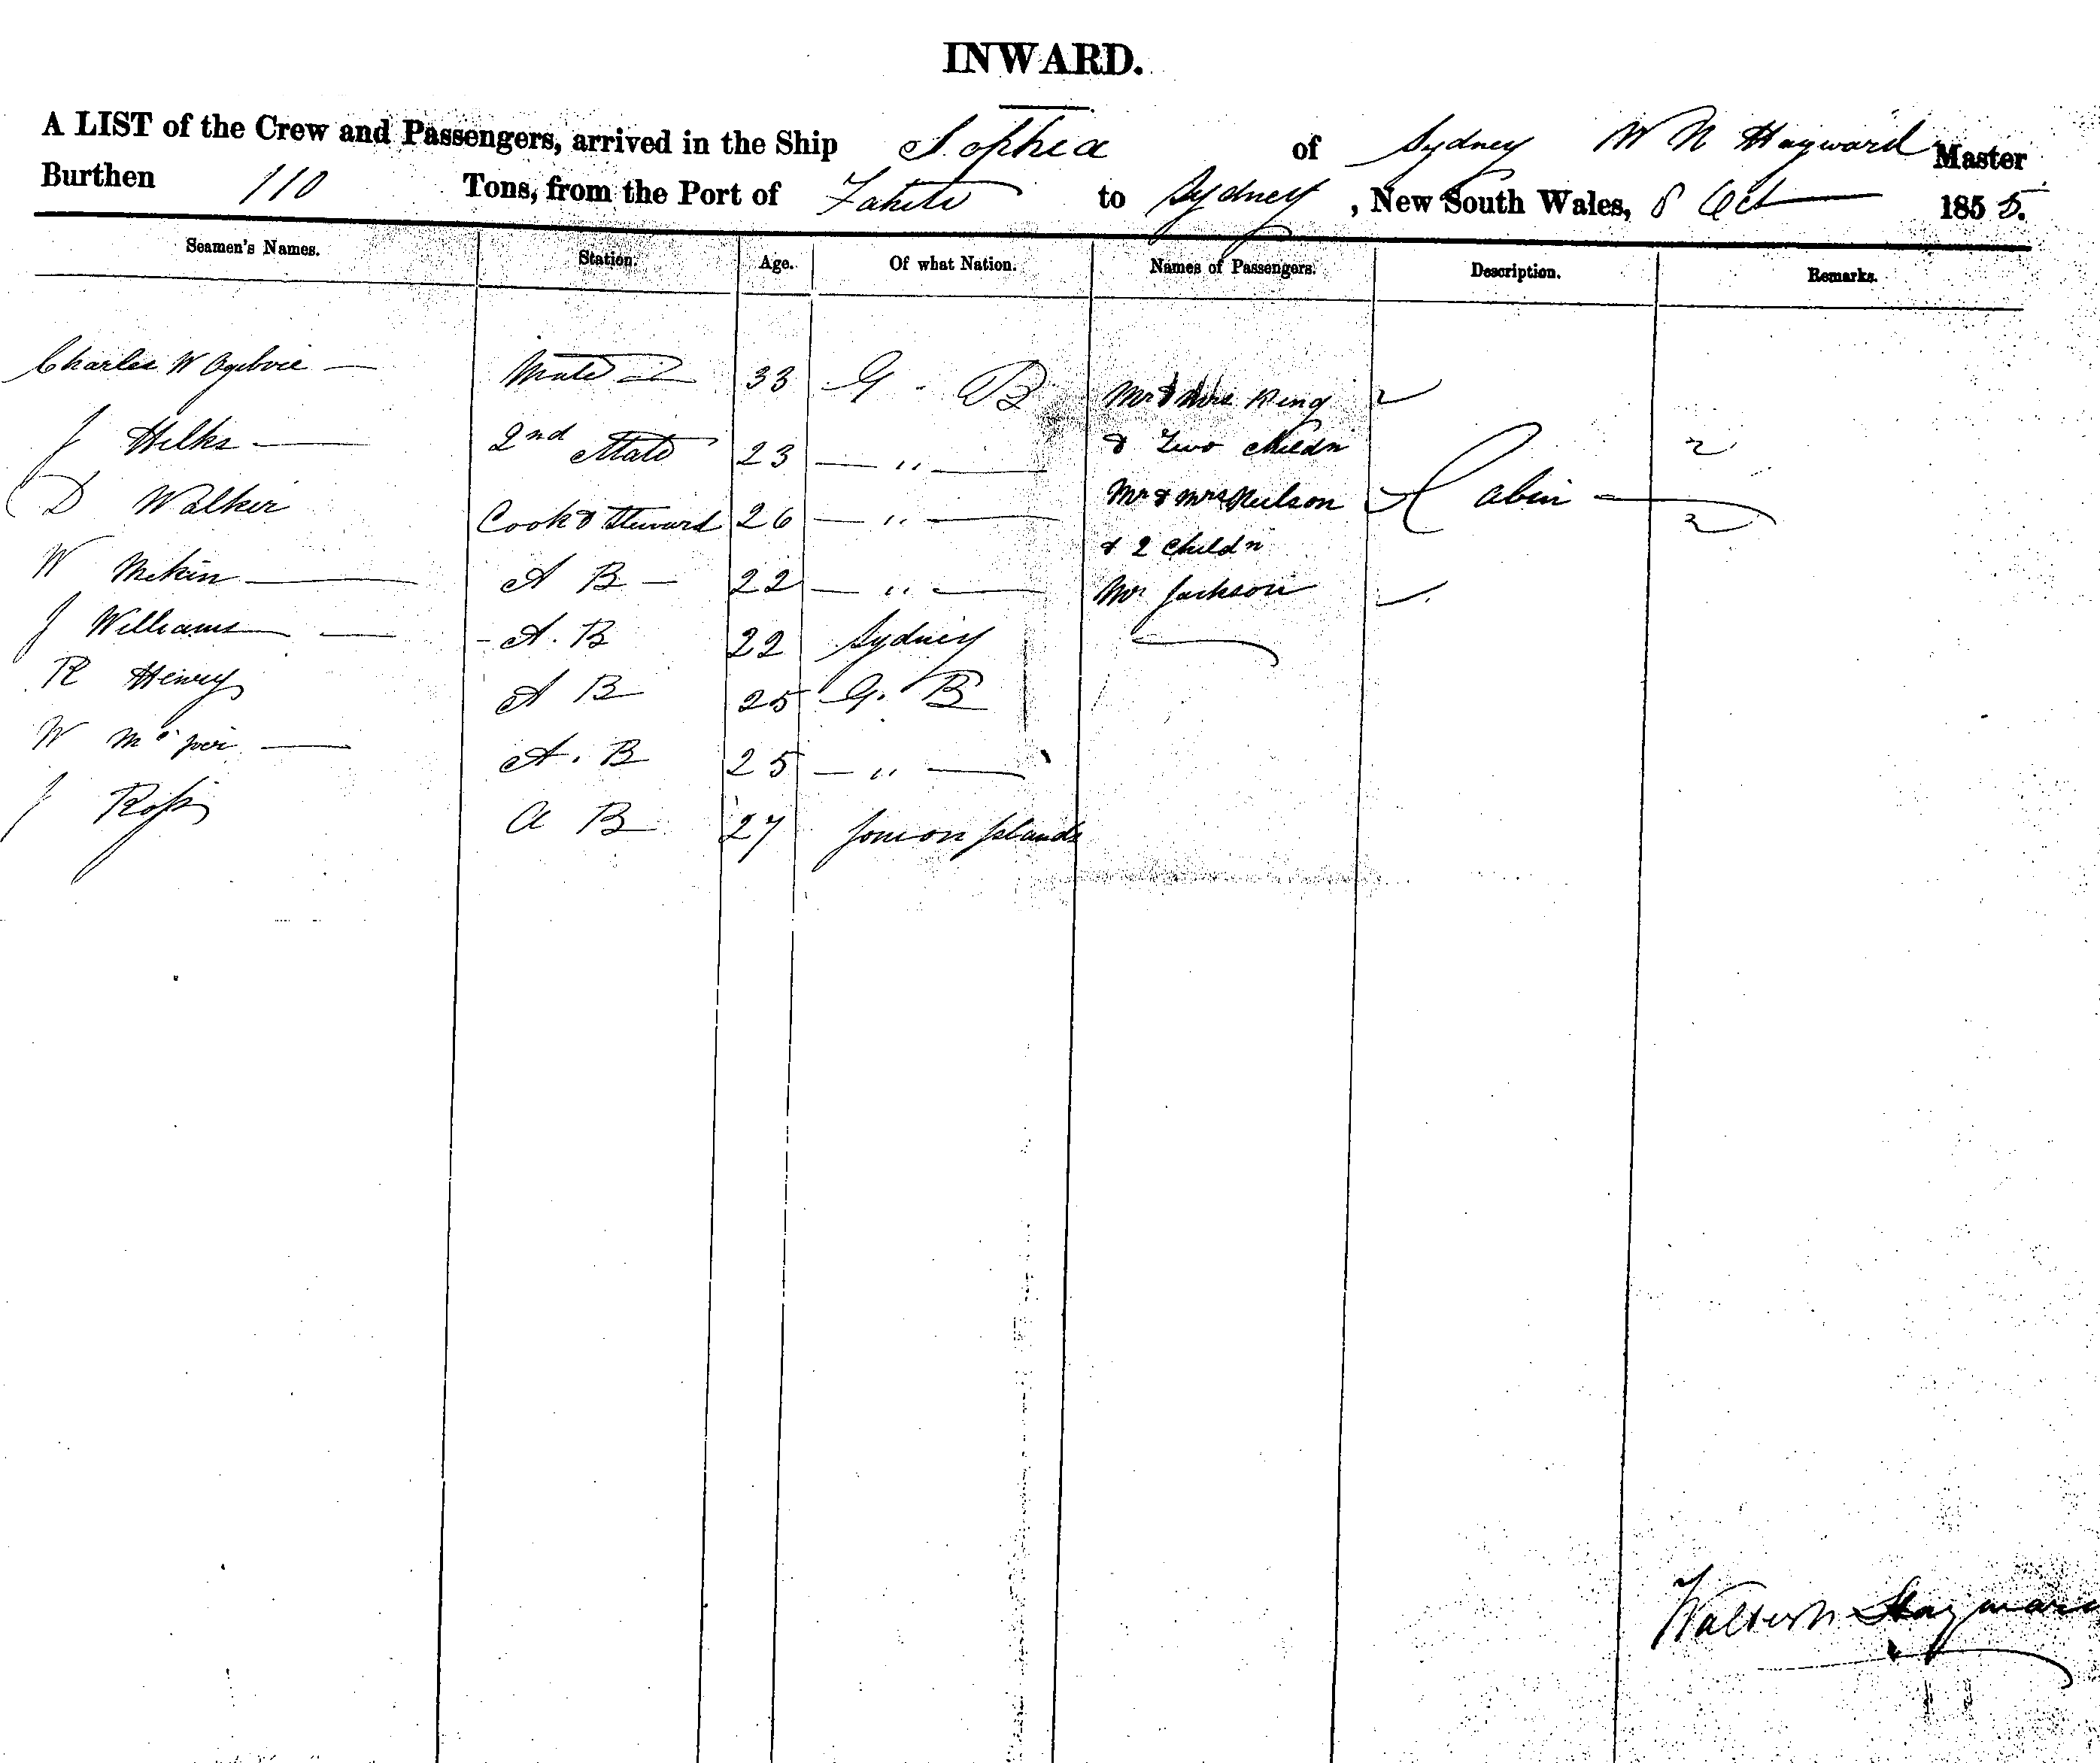 INWARD.
A LIST of the Crew and Passengers, arrived in the Ship Sophia of Sydney W N Hayward Master
Burthen 110 Tons, from the Port of Tahiti to Sydney, New South Wales, 8 Oct 1855.
Seamen's Names. Station. Age. Of what Nation. Names of Passengers. Description. Remarks.
Charles W Ogilvie — Mate 33 G. B Mr & Mrs King
J Hilks — 2nd Mate 23 — " — & Two Childn 2
D Walker Cook & Steward 26 — " — Mr & Mrs Neilson Cabin — 2
& 2 Childn
W Mekin — A B — 22 — " — Mr Jackson
J Williams — A. B 22 Sydney
R Henry A B 25 G. B
W — A. B 25 — " —
J Ross A B 27 Jonion Islands
Walter N Hayward